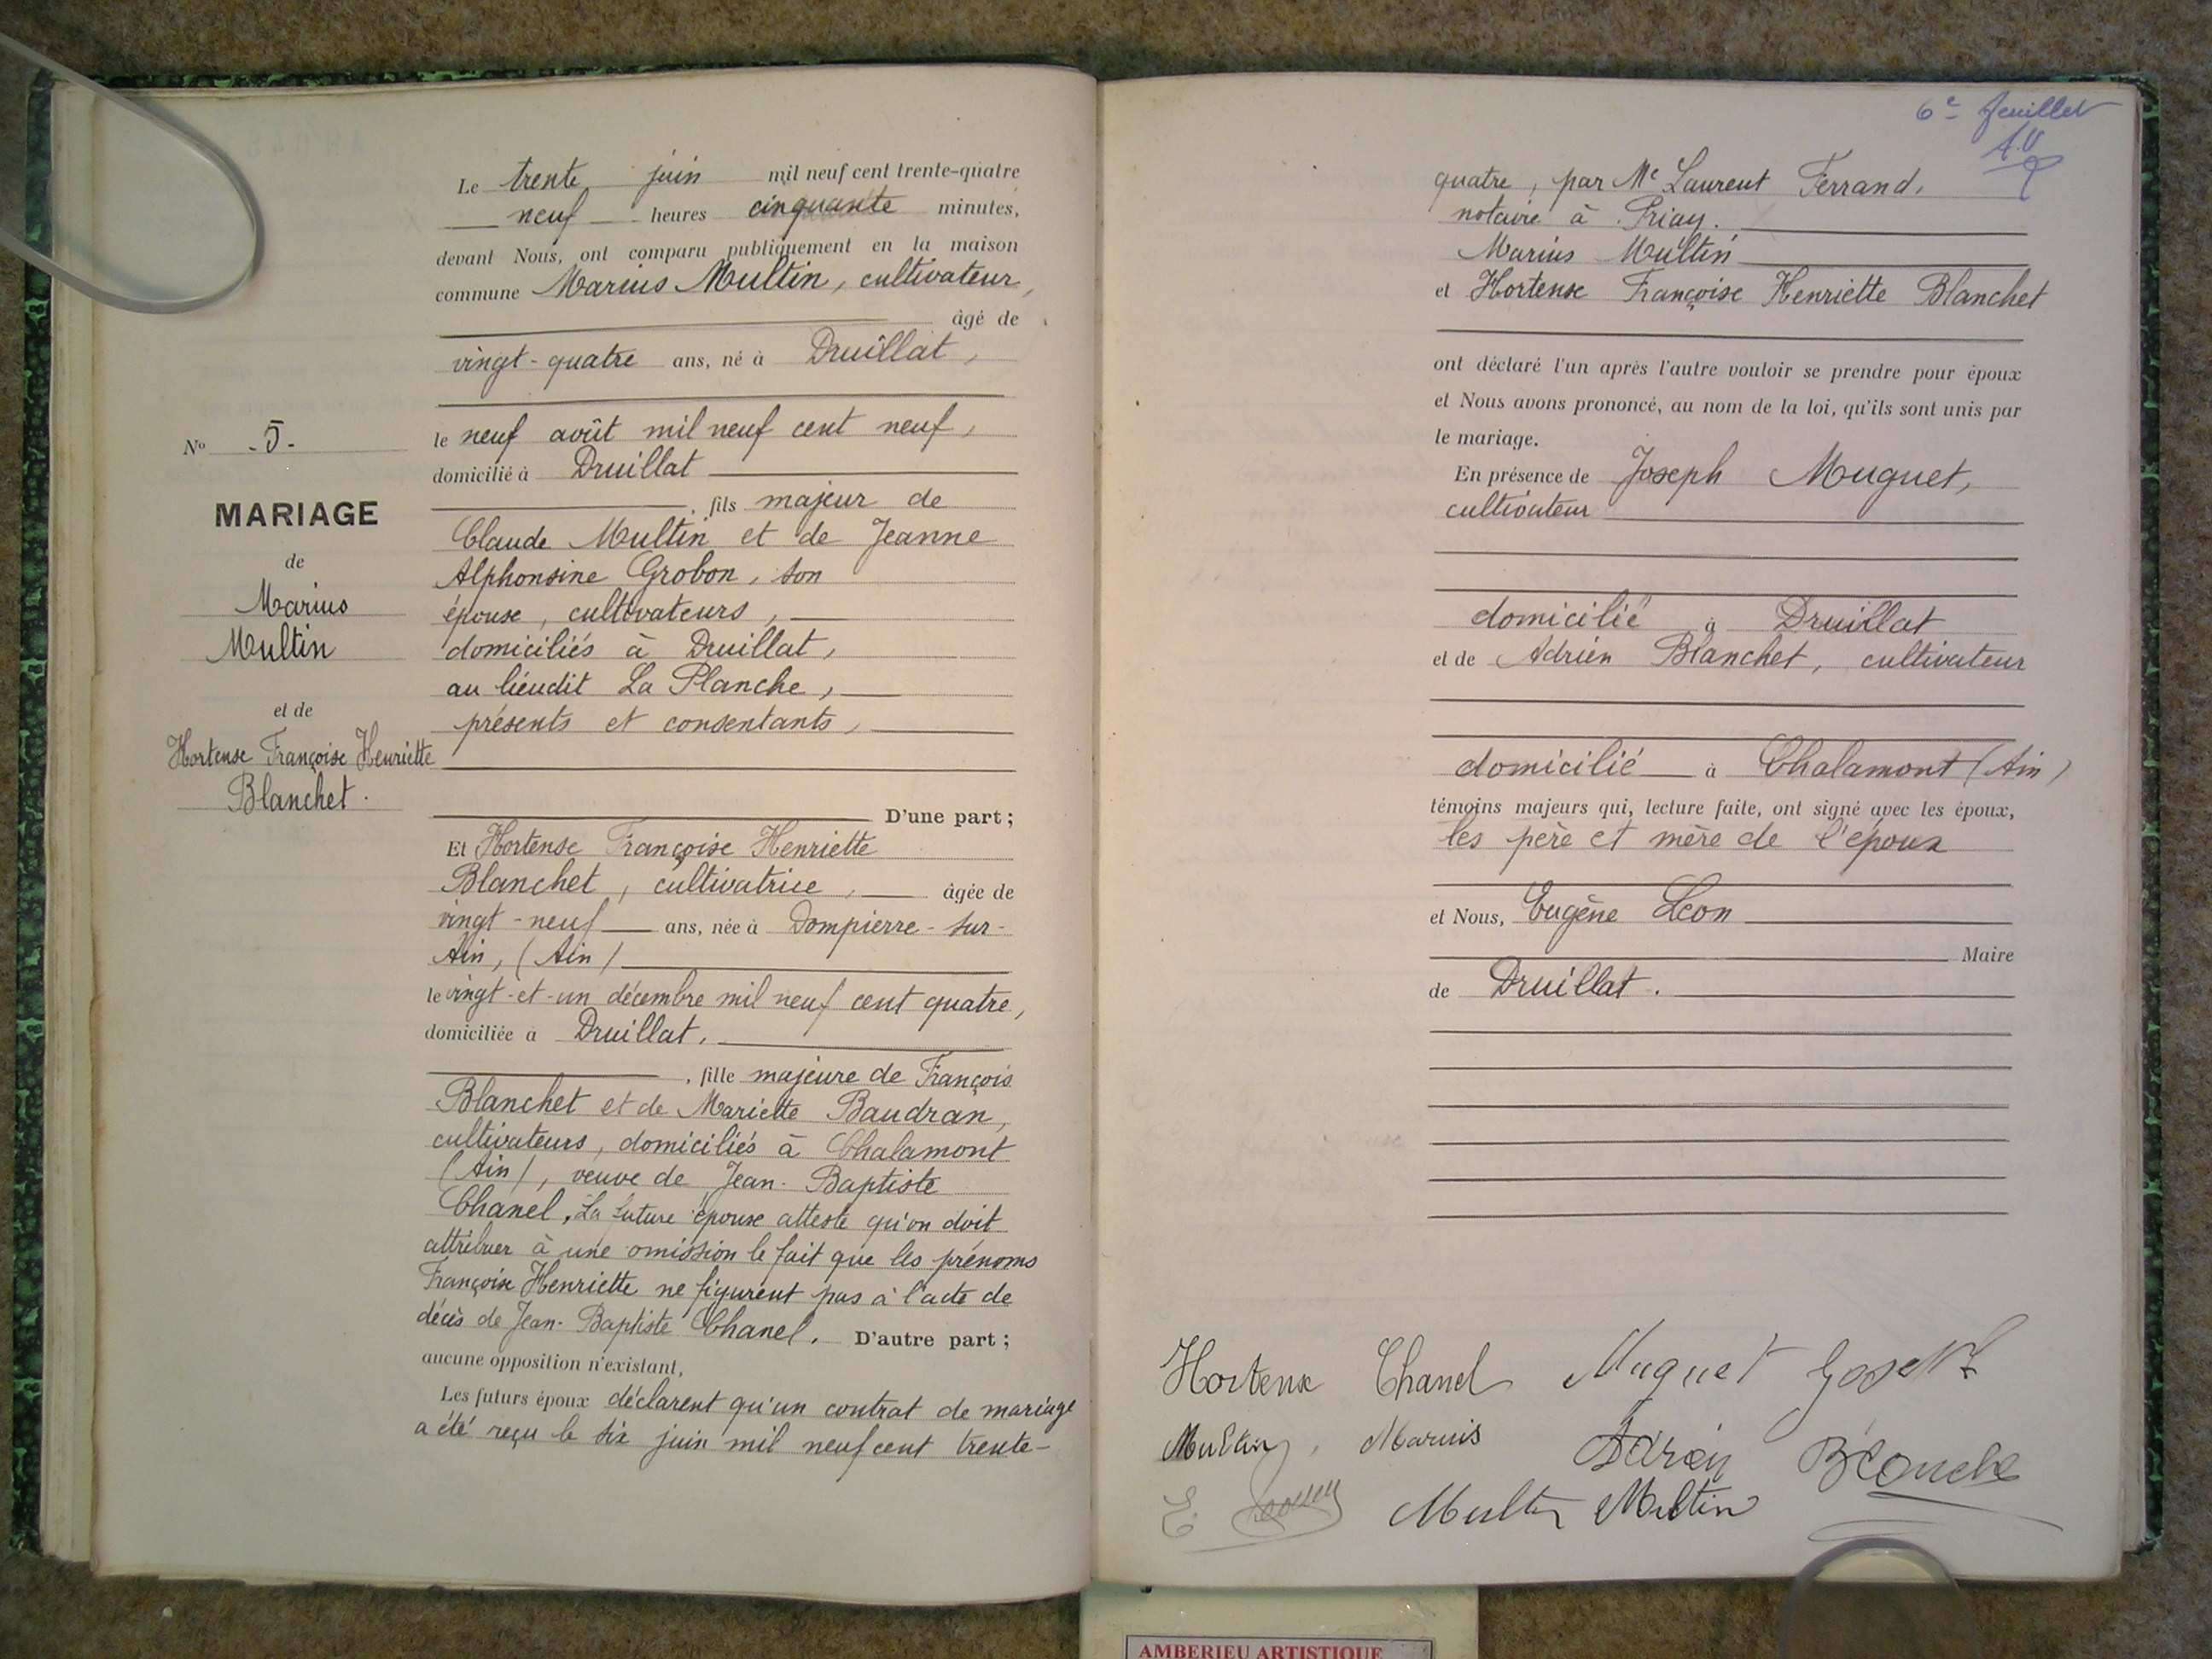 Le trente juin mil neuf cent trente-quatre
neuf heures cinquante minutes,
devant Nous, ont comparu publiquement en la maison
commune Marius Multin, cultivateur,
âgé de
vingt-quatre ans, né à Druillat,
le neuf août mil neuf cent neuf,
domicilié à Druillat
, fils majeur de
Claude Multin et de Jeanne
Alphonsine Grobon, son
épouse, cultivateurs,
domiciliés à Druillat,
au lieudit La Planche,
présents et consentants,
D'une part ;
Et Hortense Françoise Henriette
Blanchet, cultivatrice, âgée de
vingt-neuf ans, née à Dompierre-sur-
Ain, (Ain)
le vingt-et-un décembre mil neuf cent quatre,
domiciliée à Druillat,
, fille majeure de François
Blanchet et de Mariette Baudran,
cultivateurs, domiciliés à Chalamont
(Ain), veuve de Jean-Baptiste
Chanel. La future épouse atteste qu'on doit
attribuer à une omission le fait que les prénoms
Françoise Henriette ne figurent pas à l'acte de
décès de Jean-Baptiste Chanel. D'autre part ;
aucune opposition n'existant,
Les futurs époux déclarent qu'un contrat de mariage
a été reçu le six juin mil neuf cent trente-
No -5-
MARIAGE
de
Marius
Multin
et de
Hortense Françoise Henriette
Blanchet.
6e feuillet
quatre, par Me Laurent Ferrand,
notaire à Priay.
Marius Multin
et Hortense Françoise Henriette Blanchet
ont déclaré l'un après l'autre vouloir se prendre pour époux
et Nous avons prononcé, au nom de la loi, qu'ils sont unis par
le mariage.
En présence de Joseph Muguet,
cultivateur
domicilié à Druillat
et de Adrien Blanchet, cultivateur
domicilié à Chalamont (Ain)
témoins majeurs qui, lecture faite, ont signé avec les époux,
les père et mère de l'époux
et Nous, Eugène Léon
Maire
de Druillat.
Hortense Chanel Muguet Joseph
Multin, Marius Adrien Blanche
E. Multin Multin
AMBERIEU ARTISTIQUE